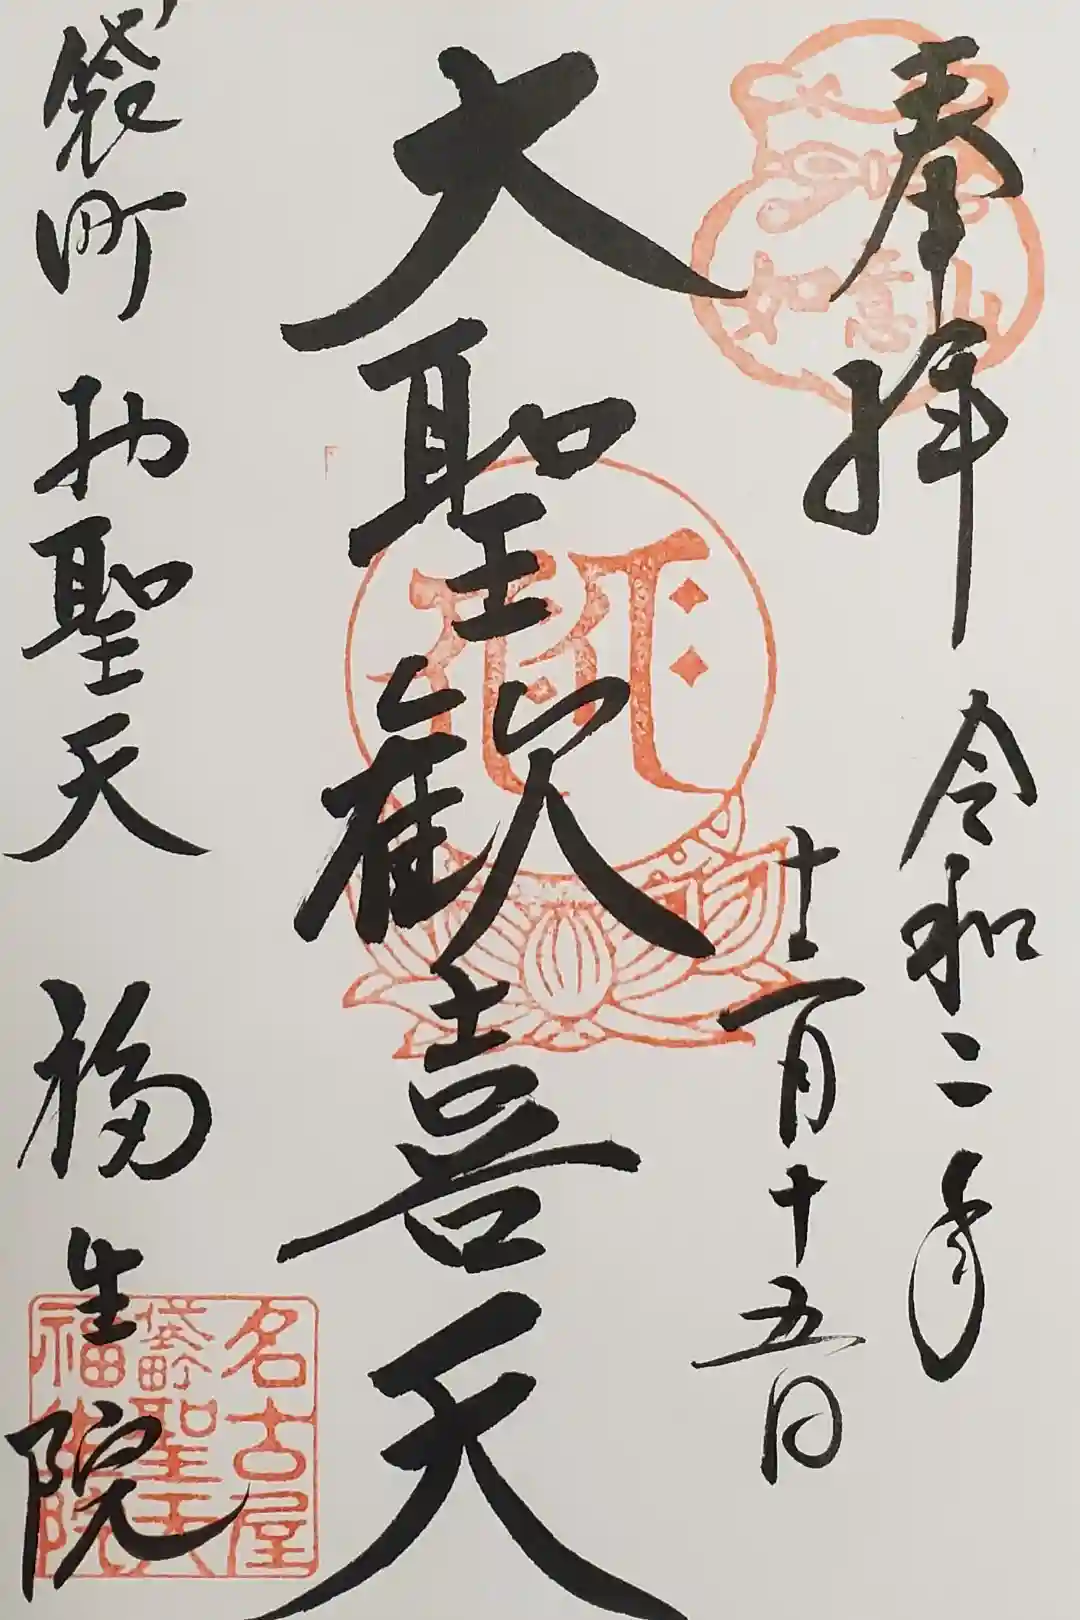 奉拝
令和二年
十二月十五日
如意山
大聖歓喜天
袋町 お聖天 福生院
名古屋
袋町聖天
福生院